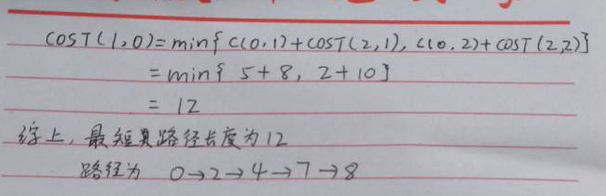 COST(1,0)=min{c(0,1)+COST(2,1), c(0,2)+COST(2,2)}
=min{ 5+8, 2+10}
= 12
综上,最短路径长度为12
路径为 0→2→4→7→8